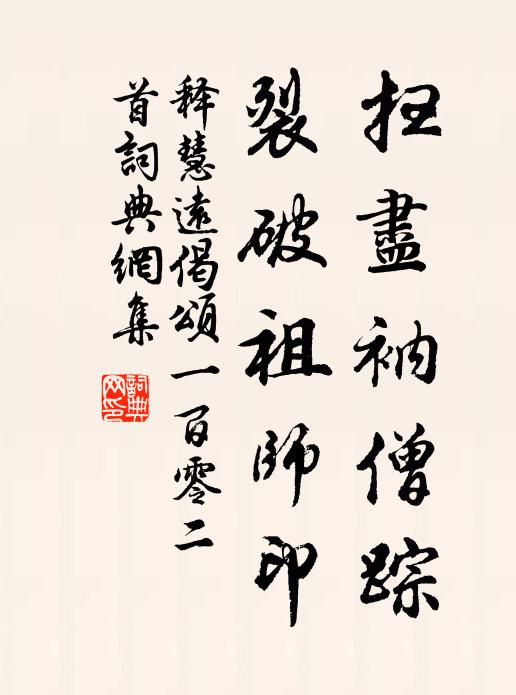 扫盡衲僧踪
裂破祖師印
释慧遠偈頌一百零二
首詞典網集
詞典
网印